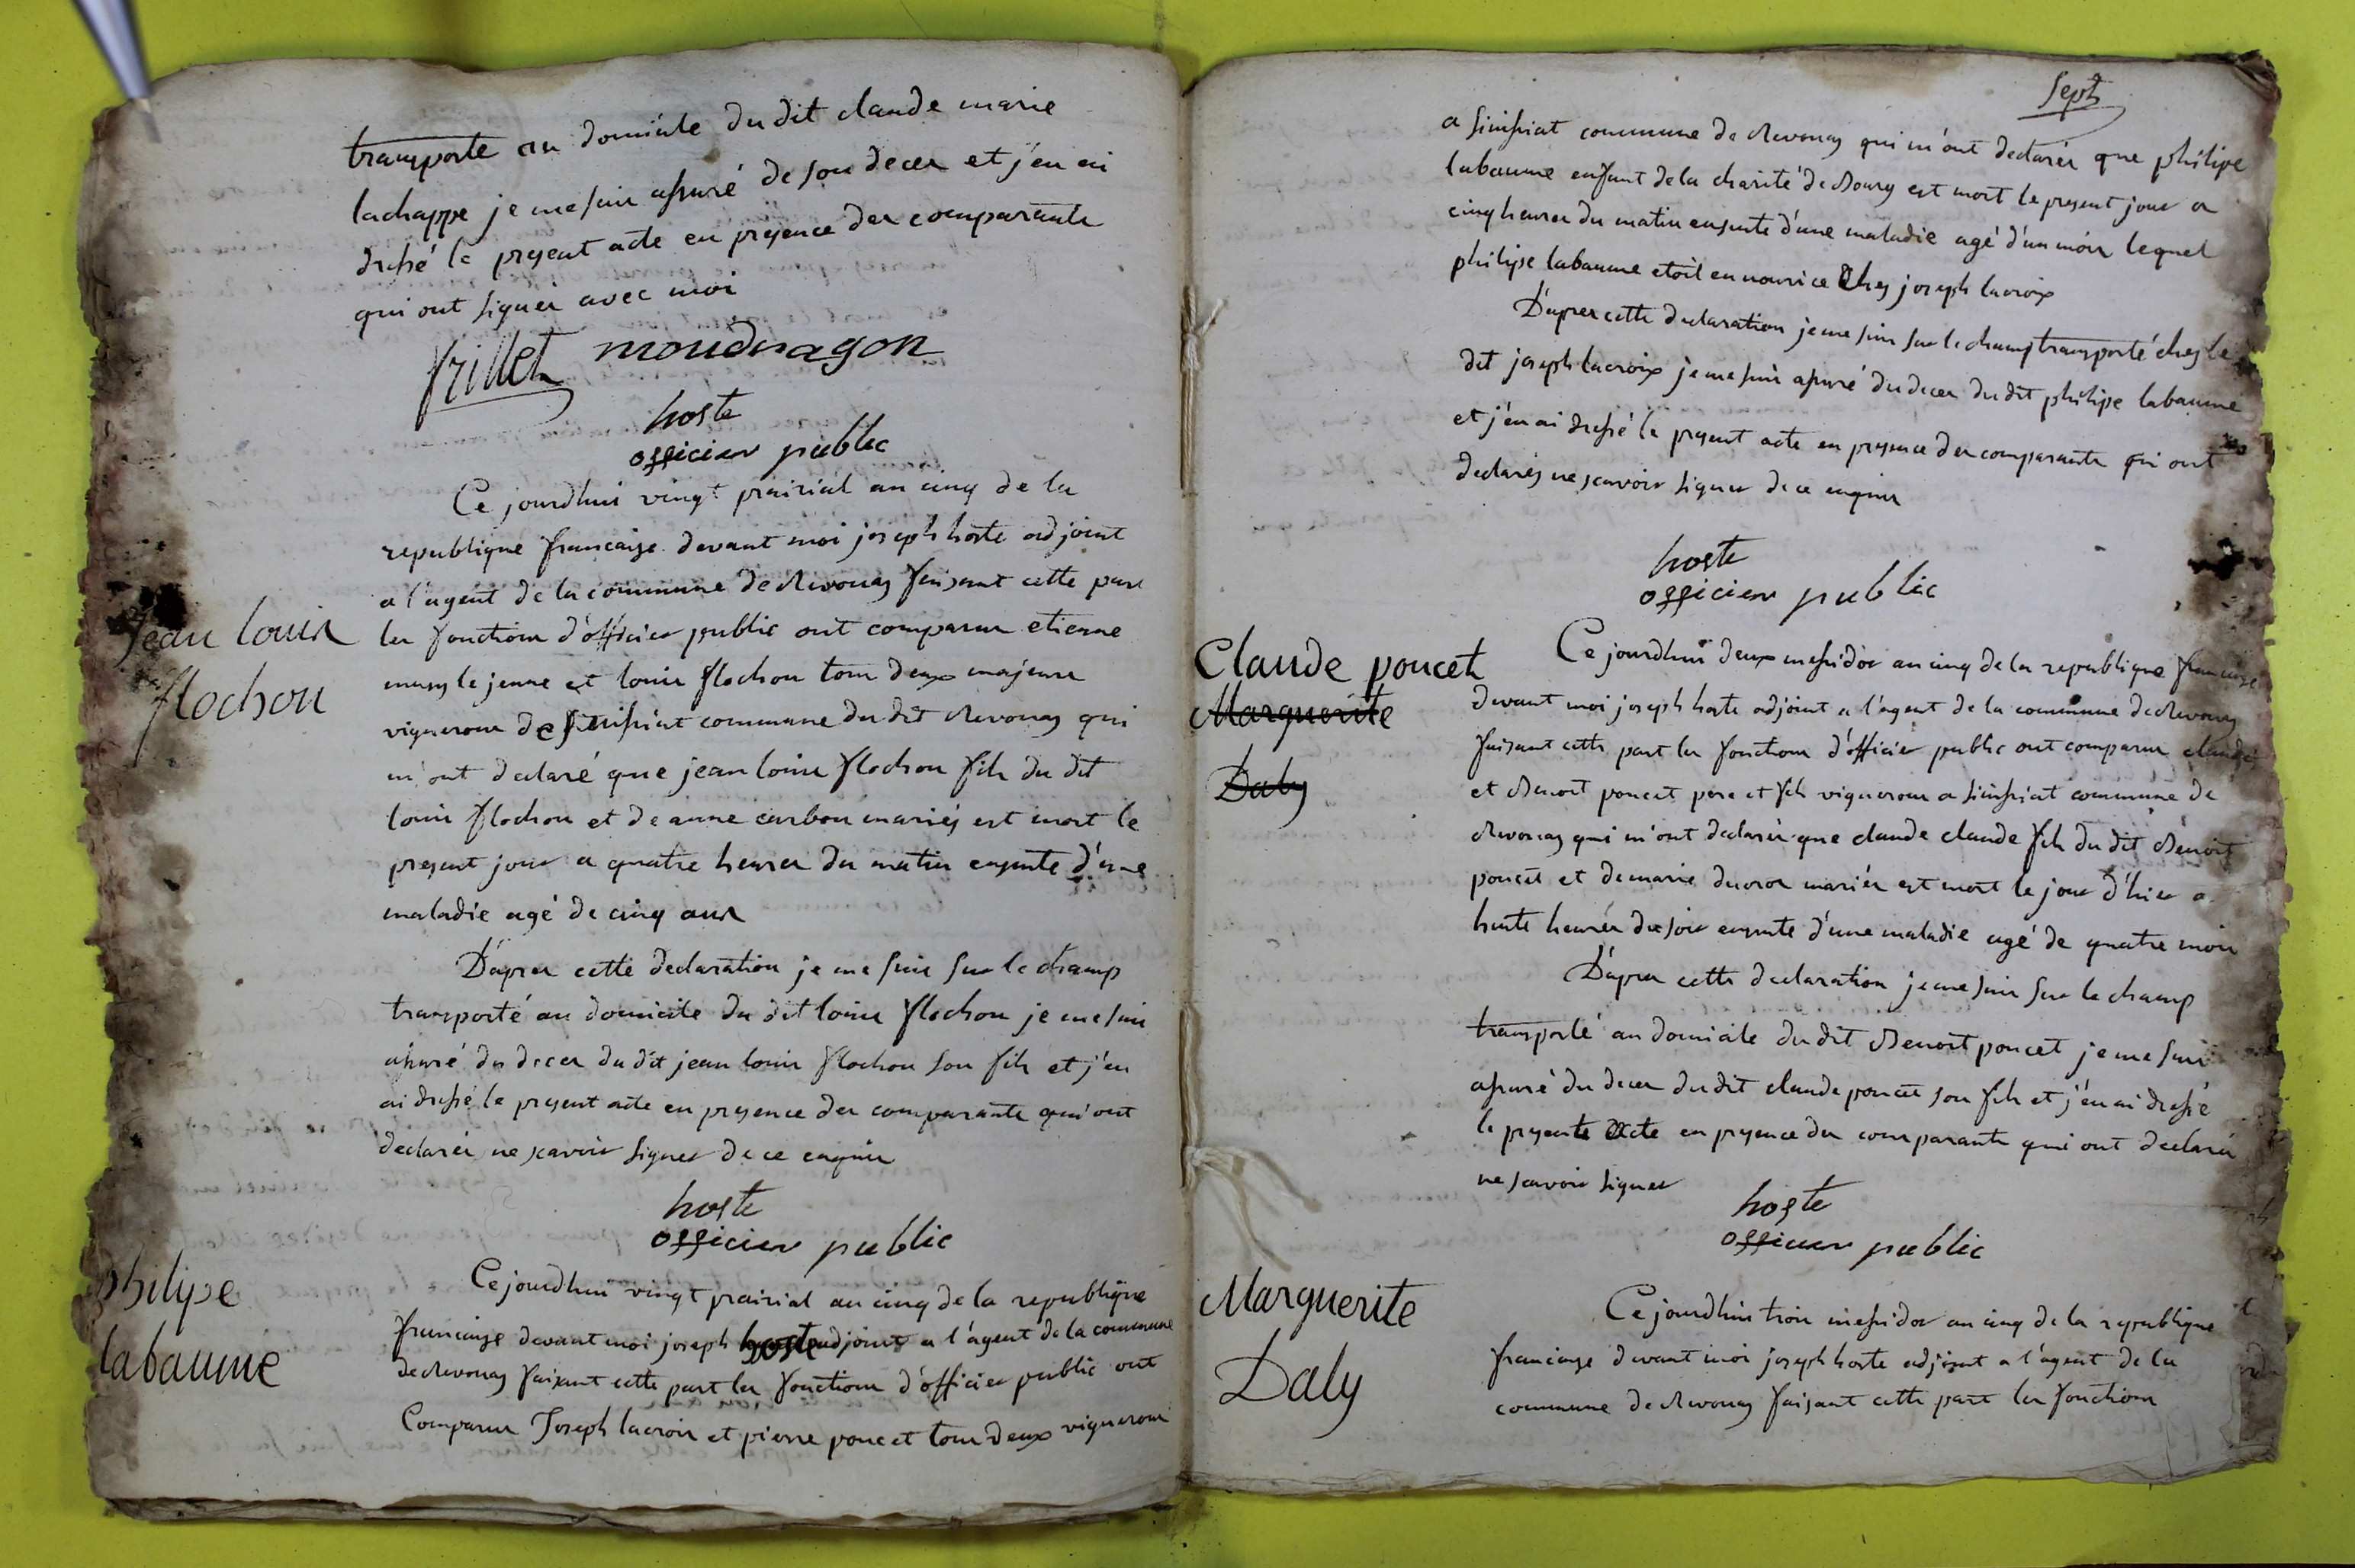 transporte au domicile du dit claude marie
lachappe je me suis assuré de son deces et j'en ai
dressé le present acte en presence des comparants
qui ont signés avec moi
frillet mondragon
hoste
officier public
Jean louis
flochon
Ce jourdhui vingt prairial an cinq de la
republique francaise devant moi joseph hoste adjoint
a l'agent de la commune de Revonas faisant cette part
les fonctions d'officier public ont comparus etienne
musy le jeune et louis flochon tous deux majeurs
vignerons de simsiat commune du dit Revonas qui
m'ont declaré que jean louis flochon fils du dit
louis flochon et de anne carbon mariés est mort le
present jour a quatre heures du matin ensuite d'une
maladie agé de cinq ans
D'apres cette declaration je me suis sur le champ
transporté au domicile du dit louis flochon je me suis
assuré du deces du dit jean louis flochon son fils et j'en
ai dressé le present acte en presence des comparants qui ont
declarés ne scavoir signer de ce enquis
hoste
officier public
philipe
labaume
Ce jourdhui vingt prairial an cinq de la republique
francaise devant moi joseph hoste adjoint a l'agent de la commune
de Revonas faisant cette part les fonctions d'officier public ont
Comparus Joseph lacroix et pierre poncet tous deux vignerons
Sept
a simsiat commune de Revonas qui m'ont declarés que philipe
labaume enfant de la charité de Bourg est mort le present jour a
cinq heures du matin ensuite d'une maladie agé d'un mois lequel
philipe labaume etoit en nourice Chez joseph lacroix
D'apres cette declaration je me suis sur le champ transporté chez le
dit joseph lacroix je me suis assuré du deces du dit philipe labaume
et j'en ai dressé le present acte en presence des comparants qui ont
declarés ne scavoir signer de ce enquis
hoste
officier public
Claude poncet
Marguerite
Daly
Ce jourdhui deux messidor an cinq de la republique francaise
devant moi joseph hoste adjoint a l'agent de la commune de Revonas
faisant cette part les fonctions d'officier public ont comparus claude
et Benoit poncet pere et fils vignerons a simsiat commune de
Revonas qui m'ont declarés que claude claude fils du dit Benoit
poncet et de marie mariés est mort le jour d'hier a
huite heures du soir ensuite d'une maladie agé de quatre mois
D'apres cette declaration je me suis sur le champ
transporté au domicile du dit Benoit poncet je me suis
assuré du deces du dit claude poncet son fils et j'en ai dressé
le presente acte en presence des comparants qui ont declarés
ne scavoir signer
hoste
officier public
Marguerite
Daly
Ce jourdhui trois messidor an cinq de la republique
francaise devant moi joseph hoste adjoint a l'agent de la
commune de Revonas faisant cette part les fonctions